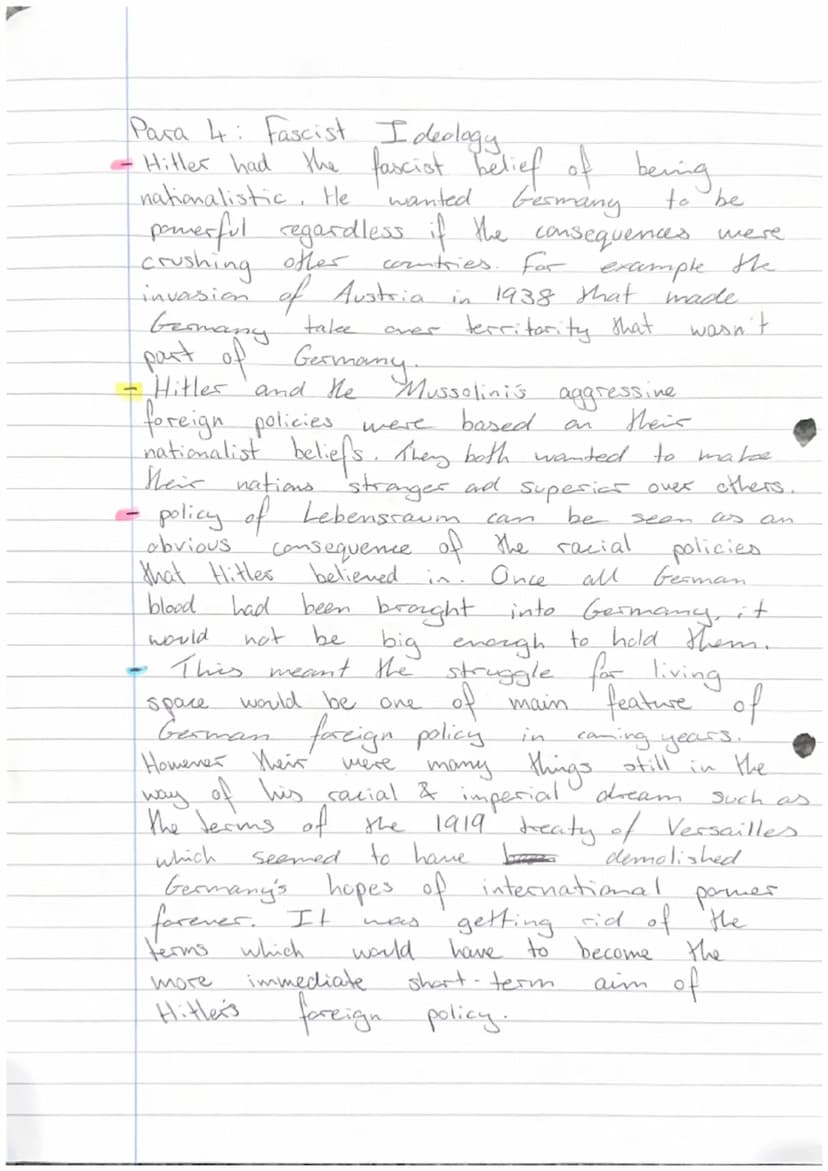 Para 4: Fascist Ideology
- Hitler had the fascist belief of being
nationalistic. He wanted Germany to be
powerful regardless if the consequences were
crushing other countries. For example the
invasion of Austria in 1938 that made
Germany take over territarity that wasn't
part of Germany.
- Hitler and the Mussolini's aggressive
foreign policies were based on their
nationalist beliefs. They both wanted to make
their nations stronger ad superior over others.
- policy of Lebensraum can be seen as an
obvious consequence of the racial policies
that Hitler believed in. Once all German
blood had been brought into Germany, it
would not be big enough to hold them.
- This meant the struggle for living
space would be one of main feature of
German foreign policy in coming years.
However their were many things still in the
way of his racial & imperial dream such as
the terms of the 1919 treaty of Versailles
which seemed to have demolished
Germany's hopes of international power
forever. It was getting rid of the
terms which would have to become the
more immediate short-term aim of
Hitler's foreign policy.